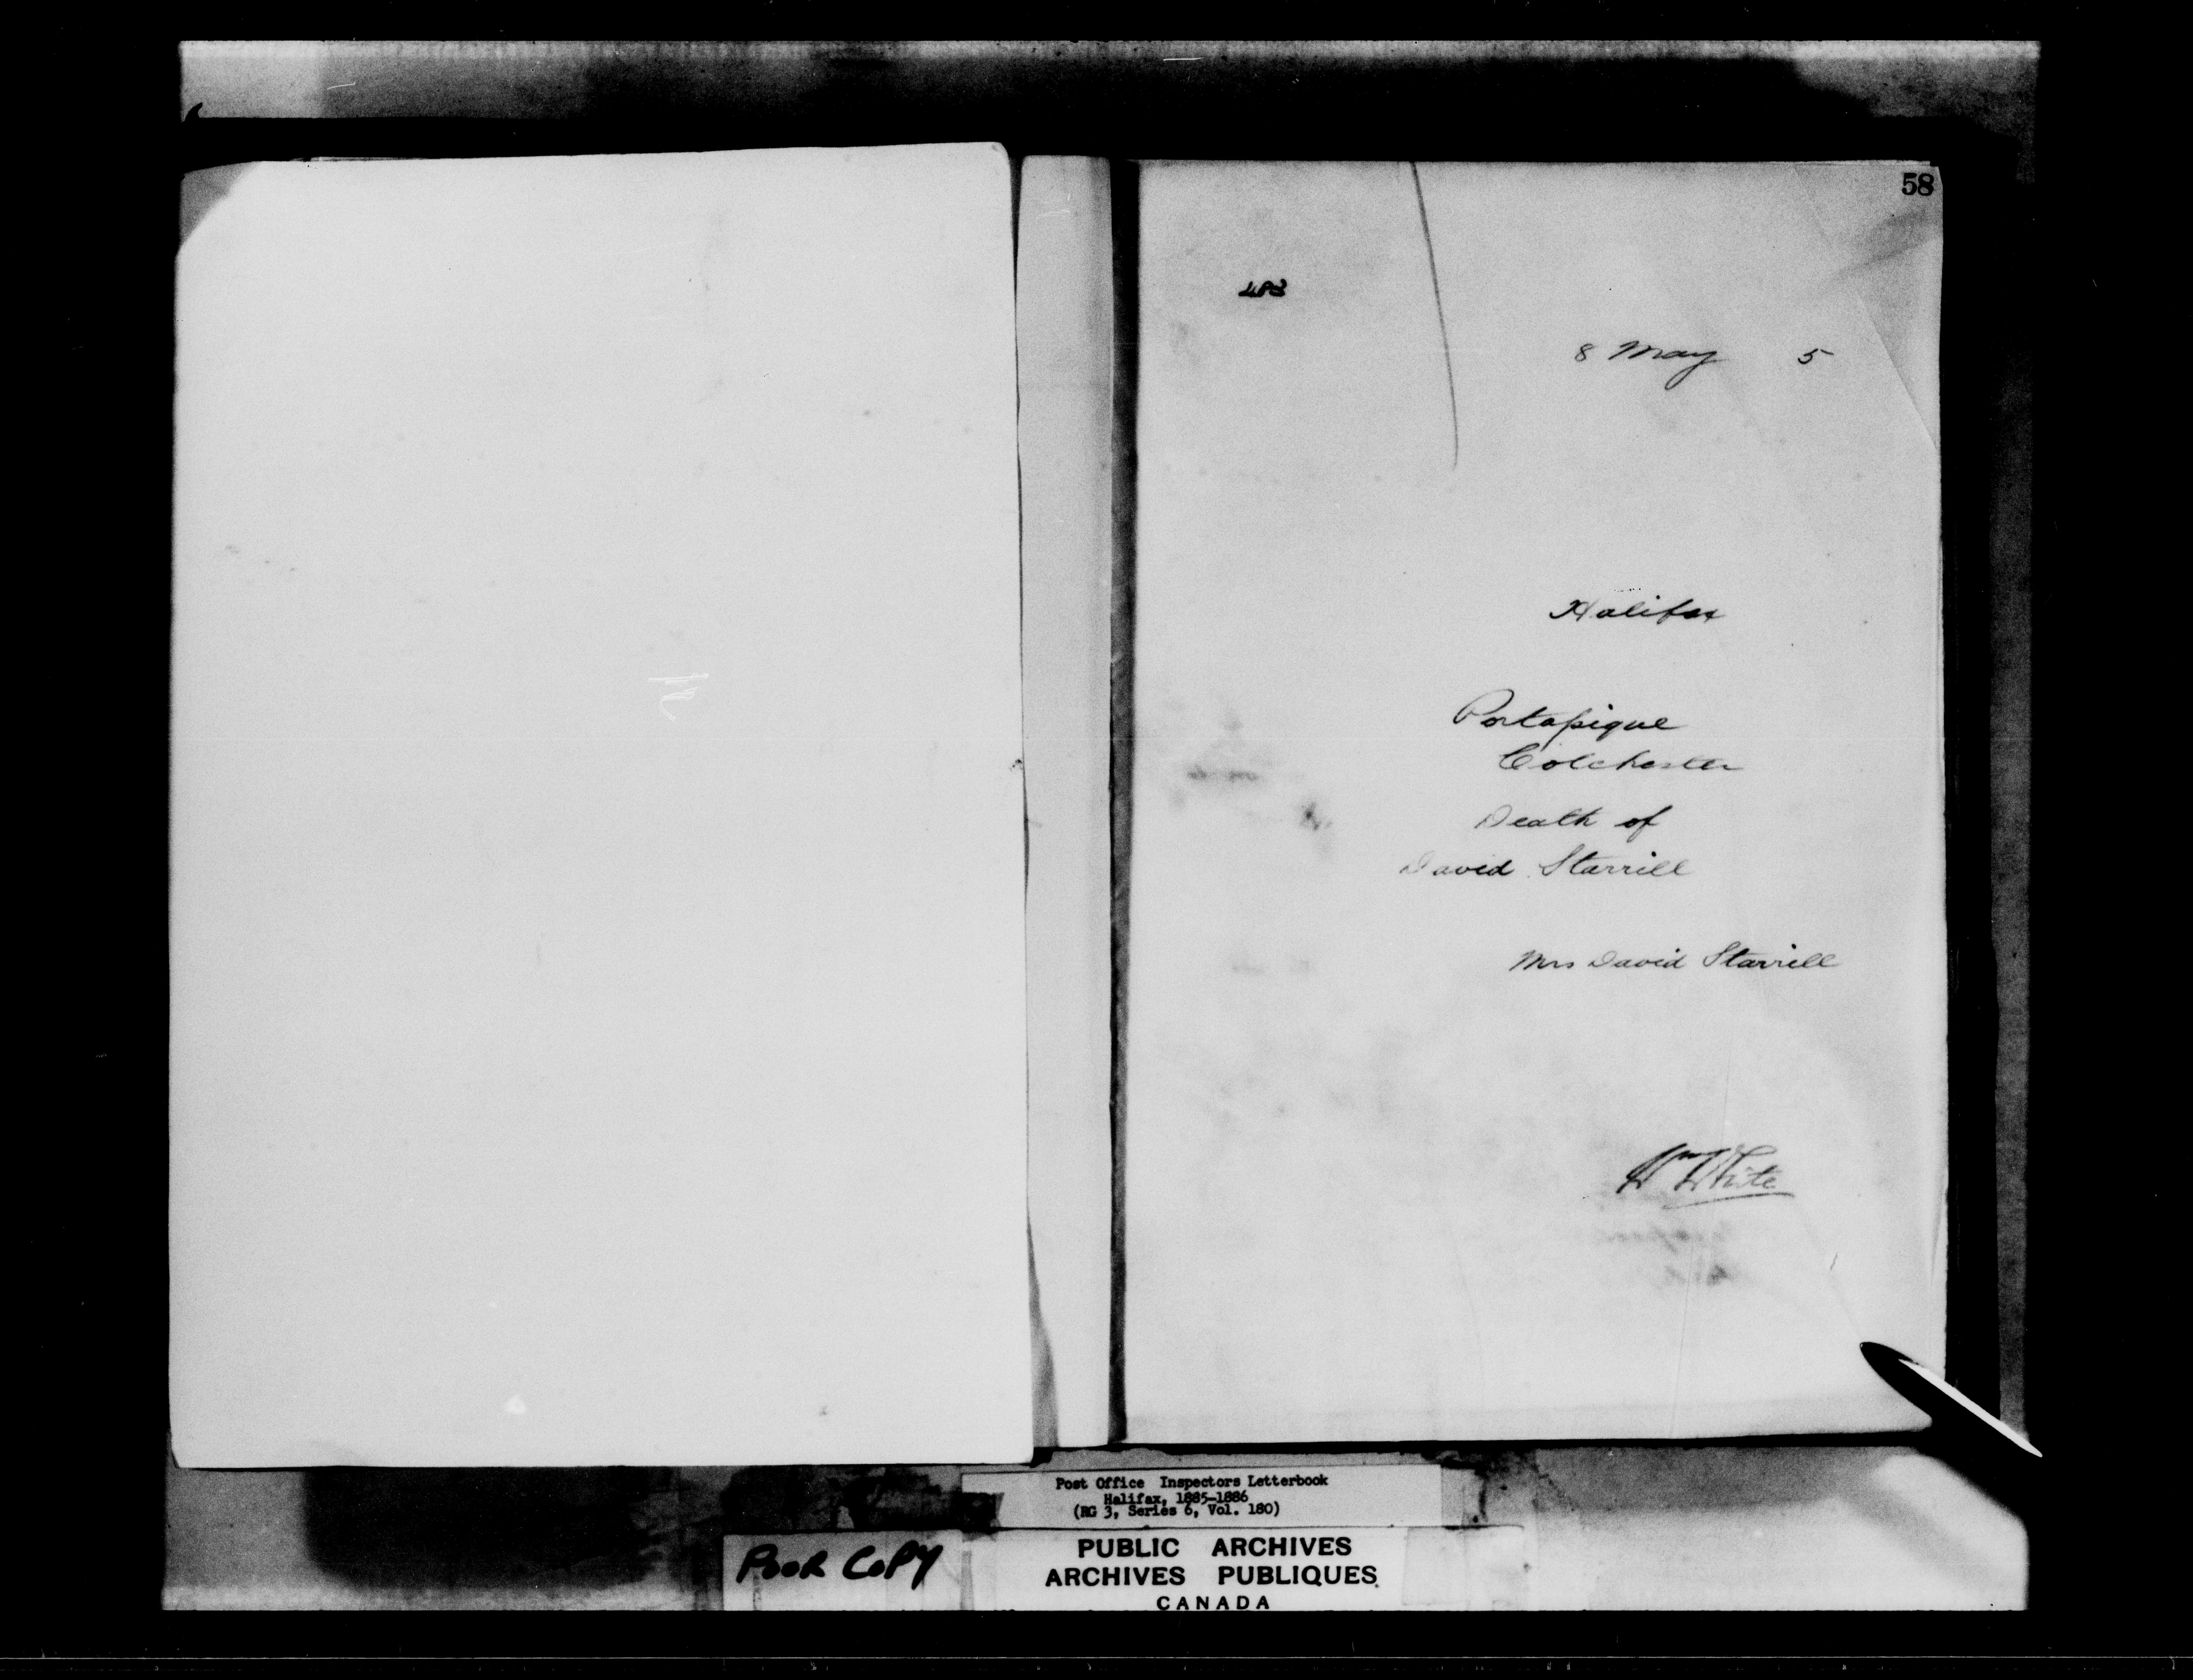 58
483
8 May 5
Halifax
Portapique
Colchester
Death of
David Starrill
Mrs David Starrill
Wm White
Post Office Inspectors Letterbook
Halifax, 1885-1886
(RG 3, Series 6, Vol. 180)
POOR COPY
PUBLIC ARCHIVES
ARCHIVES PUBLIQUES
CANADA